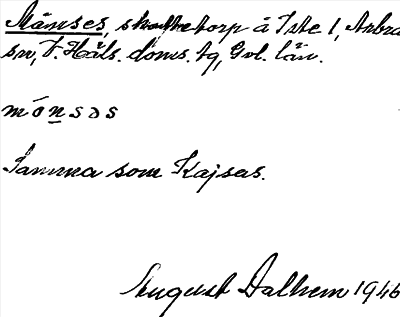 Månses, skattetorp å Iste 1, Arbrå
sn, V. Häls. doms. tg, Gvl. län.
mónsəs
Samma som Kajsas.
August Dalhem 1946